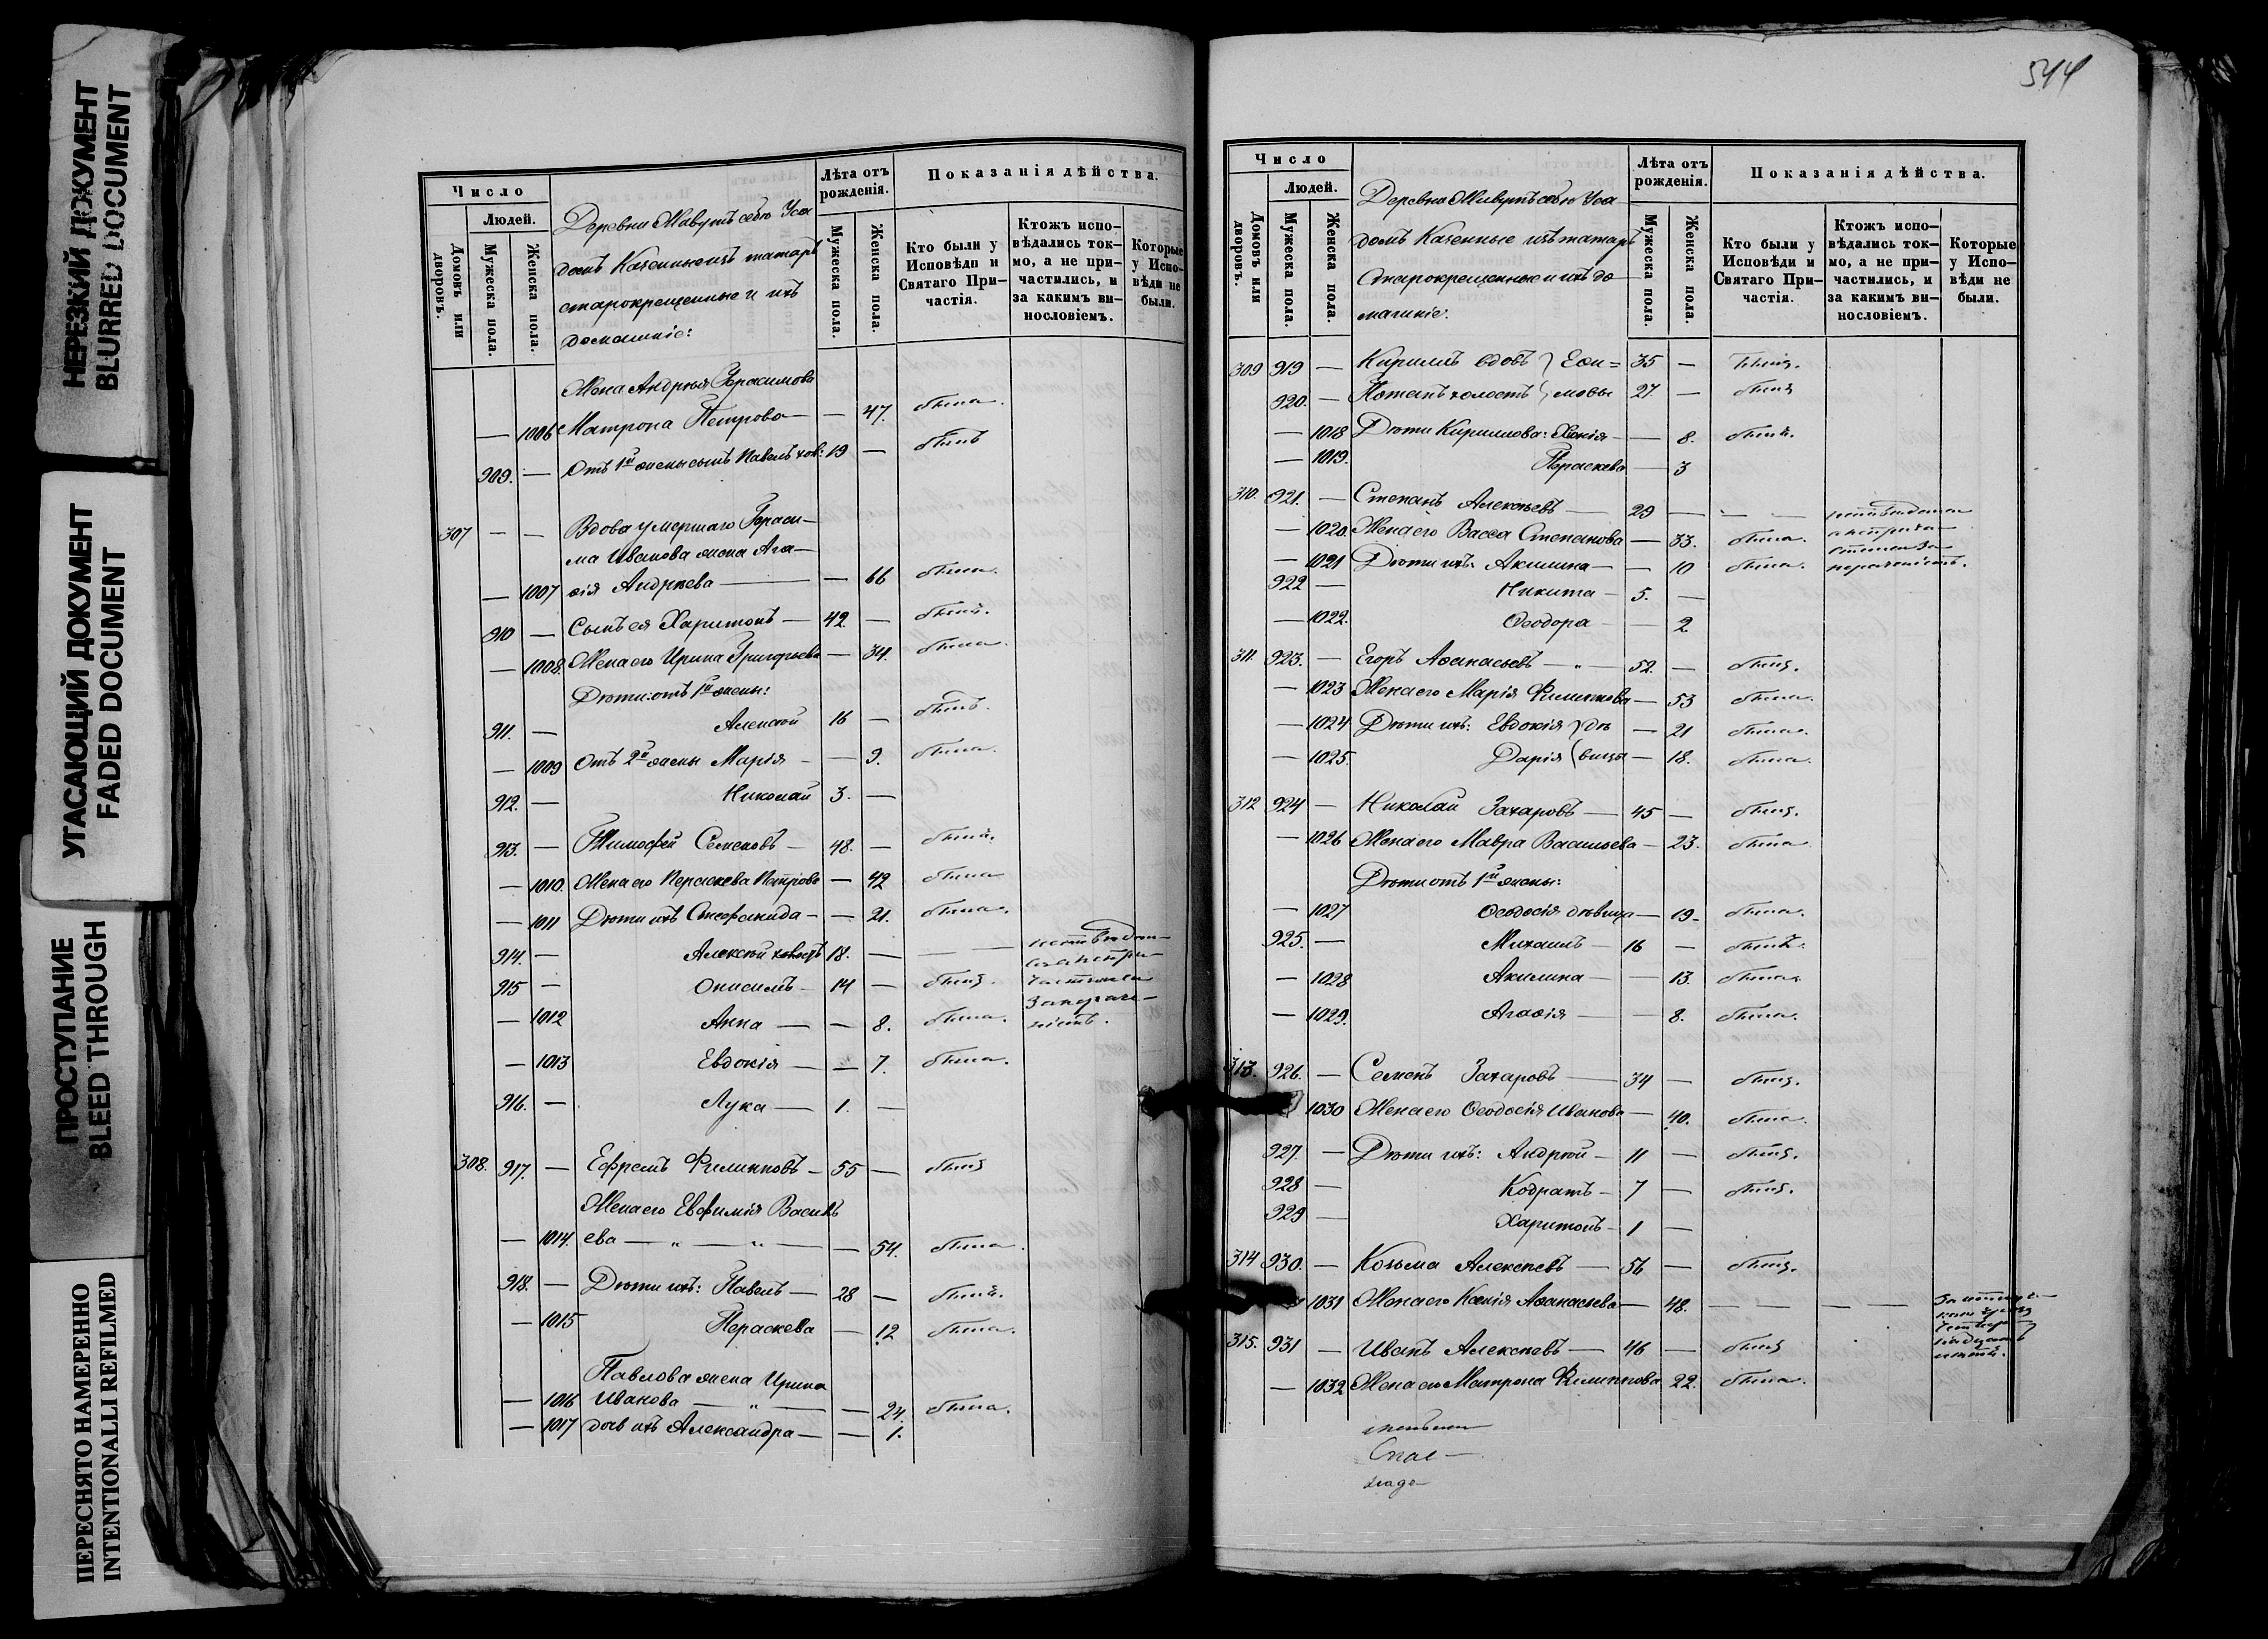 НЕРЕЗКИЙ ДОКУМЕНТ
BLURRED DOCUMENT
УГАСАЮЩИЙ ДОКУМЕНТ
FADED DOCUMENT
ПРОСТУПАНИЕ
BLEED THROUGH
ПЕРЕСНЯТО НАМЕРЕННО
INTENTIONALLI REFILMED
Число
Людей.
Домовъ или дворовъ.
Мужеска пола.
Женска пола.
Деревни
старокрещенные и ихъ
домашніе:
Лѣта отъ рожденія.
Мужеска пола.
Женска пола.
Показанія дѣйства.
Кто были у Исповѣди и Святаго При-частія.
Ктожъ испо-вѣдались ток-мо, а не при-частились, и за какимъ ви-нословіемъ.
Которые у Испо-вѣди не были.
Жена Андрея Герасимова
— 1006 Матрона Петрова — — 47. была.
909. — Отъ 1й жены сынъ Павелъ хол: 19 — былъ
307 — — Вдова умершаго Гераси-
ма Иванова жена Ага-
— 1007 ѳія Андреева — — 66 была.
910 — Сынъ ея Харитонъ — 42. — былъ.
— 1008. Жена его Ирина Григорьева — 34. была.
Дѣти: отъ 1й жены:
911. — Алексѣй 16 — былъ.
— 1009 Отъ 2й жены Марія — — 9. была.
912. — Николай 3. —
913. — Тимофей Семеновъ — 48. — былъ.
— 1010. Жена его Параскева Петрова — 42 была
— 1011 Дѣти ихъ Стефанида — — 21. была.
914. — Алексѣй холостъ 18. — — —
915 — Онисимъ — 14 — былъ.
— 1012 Анна — — 8. была.
— 1013 Евдокія — — 7. была.
916. — Лука — 1. —
308. 917. — Ефремъ Филипповъ — 55 — былъ
Жена его Евфимія Василь
— 1014. ева — „ — „ — — 54. была.
918. — Дѣти ихъ: Павелъ — 28 — былъ.
— 1015 Параскева — 12 была.
Павлова жена Ирина
— 1016 Иванова — „ — — 24. была.
— 1017 дочь ихъ Александра — — 1.
544
Число
Людей.
Домовъ или дворовъ.
Мужеска пола.
Женска пола.
Деревни
домъ Казенные изъ татаръ
Старокрещенные и ихъ до
машніе.
Лѣта отъ рожденія.
Мужеска пола.
Женска пола.
Показанія дѣйства.
Кто были у Исповѣди и Святаго При-частія.
Ктожъ испо-вѣдались ток-мо, а не при-частились, и за какимъ ви-нословіемъ.
Которые у Испо-вѣди не были.
309 919 — Кириллъ вдовъ } Ефи= 35 — былъ.
920. — Потапъ холостъ } мовы 27. — былъ
— 1018 Дѣти Кириллова: Ксенія — — 8. была.
— 1019. Параскева — 3
310. 921. — Степанъ Алексѣевъ — 29 — — —
— 1020. Жена его Васса Степанова — 33. была.
— 1021 Дѣти ихъ: Акилина — — 10 была.
922 — Никита — 5. —
— 1022. Ѳеодора — — 2
311. 923. — Егоръ Аѳанасьевъ — „ — 52. — былъ.
— 1023 Жена его Марія Филиппова — 53 была.
— 1024 Дѣти ихъ: Евдокія } дѣ — 21 была.
— 1025. Дарія } вицы — 18. была.
312 924 — Николай Захаровъ — 45 — былъ.
— 1026 Жена его Мавра Васильева — 23. была
Дѣти отъ 1й жены:
— 1027 Ѳеодосія дѣвица — 19. была.
925. — Михаилъ — 16 — былъ.
— 1028 Акилина — — 13. была.
— 1029. Агаѳія — — 8. была.
313. 926. — Семенъ Захаровъ — 34 — былъ.
1030 Жена его Ѳеодосія Иванова — 40. была.
927. — Дѣти ихъ: Андрей — 11 — былъ.
928 — Кодратъ — 7 — былъ.
929 — Харитонъ — 1 —
314 930. — Козьма Алексѣевъ — 56 — былъ.
1031 Жена его Ксенія Аѳанасьева — 48. — — — —
315. 931 — Иванъ Алексѣевъ — 46 — былъ
— 1032 Жена его Матрона Филиппова 22. была.